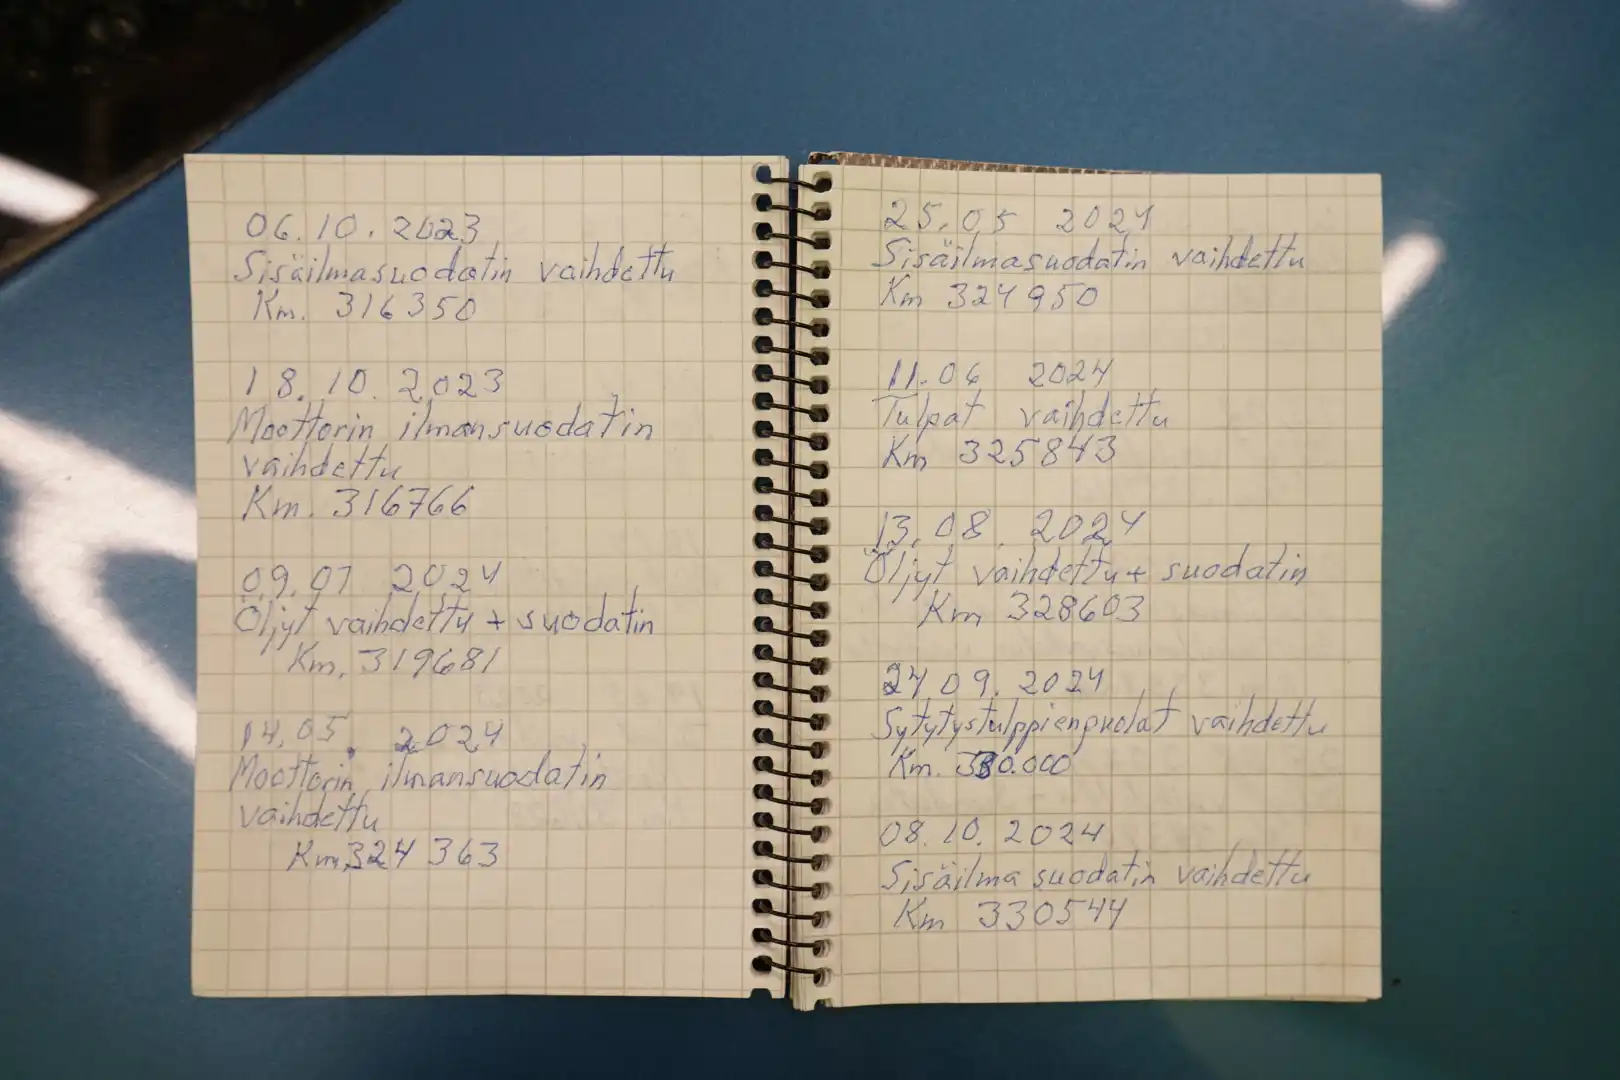 06.10.2023
Sisäilmasuodatin vaihdettu
Km. 316350
18.10.2023
Moottorin ilmansuodatin
vaihdettu
Km. 316766
09.01 2024
Öljyt vaihdettu + suodatin
Km. 319681
14.05. 2024
Moottorin ilmansuodatin
vaihdettu
Km 324 363
25.05 2024
Sisäilmasuodatin vaihdettu
Km 324950
11.06 2024
Tulpat vaihdettu
Km 325843
13.08. 2024
Öljyt vaihdettu + suodatin
Km 328603
24 09. 2024
Sytytystulppienpuolat vaihdettu
Km. 330.000
08.10.2024
Sisäilma suodatin vaihdettu
Km 330544